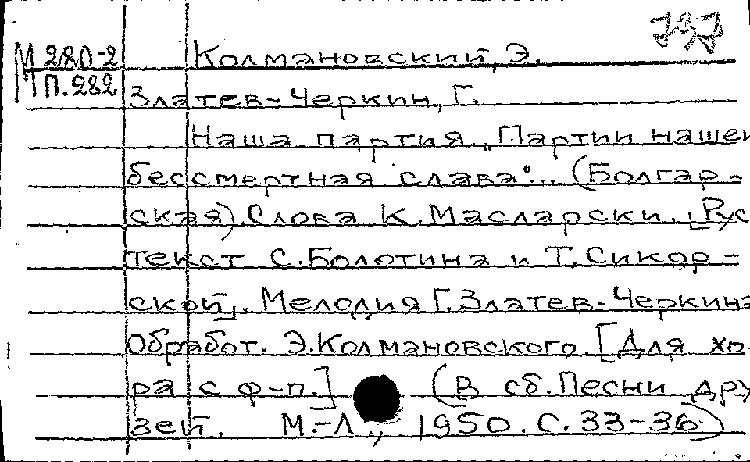 737
М 280-2 Колмановский, Э.
М П.282 Златев-Черкин, Г.
Наша партия „Партии нашей
бессмертная слава"... (Болгар-
ская). Слова К. Масларски. [Рус
текст С. Болотина и Т. Сикор-
ской]. Мелодия Г. Златев-Черкина
Обработ. Э. Колмановского. [Для хо-
ра с ф-п.] (В сб. Песни дру
зей. М.-Л., 1950. С. 33-36)